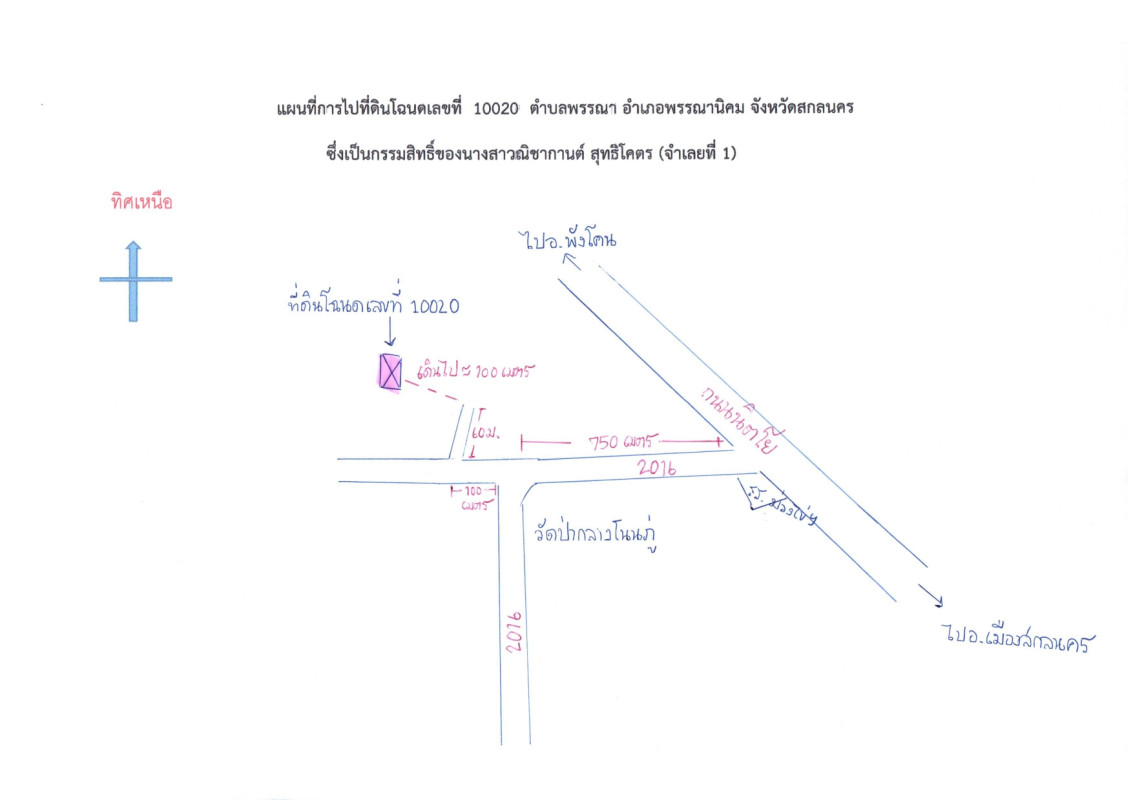 แผนที่การไปที่ดินโฉนดเลขที่ 10020 ตำบลพรรณา อำเภอพรรณานิคม จังหวัดสกลนคร
ซึ่งเป็นกรรมสิทธิ์ของนางสาวณิชากานต์ สุทธิโคตร (จำเลยที่ 1)
ทิศเหนือ
ไปอ.พังโคน
ที่ดินโฉนดเลขที่ 10020
เดินไป ≈ 100 เมตร
ถนนนิตโย
750 เมตร
2016
100
เมตร
วัดป่ากลางโนนภู่
2016
ไปอ.เมืองสกลนคร